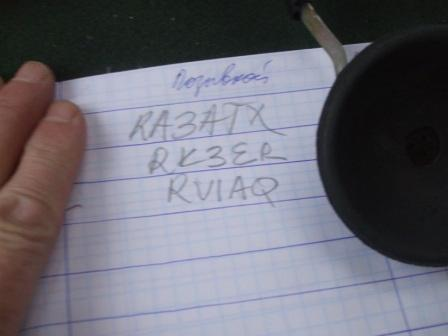 Позывной
RA3ATX
RK3ER
RV1AQ